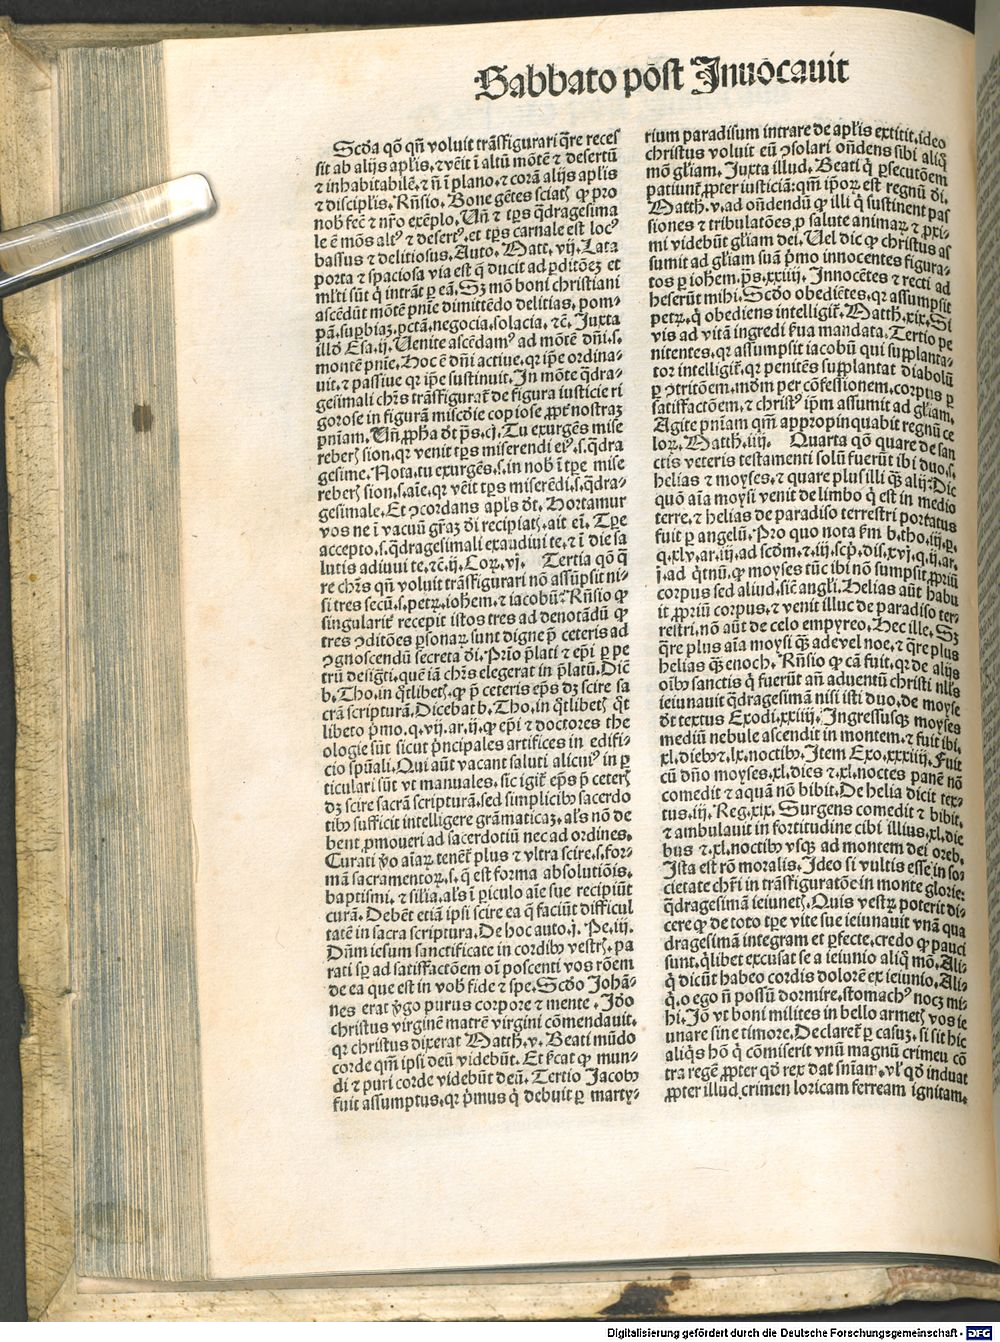 Sabbato pōst Inuōcauit
Scd̄a qō qn̄ voluit trāsfigurari q̄re reces
sit ab alijs apl̄is, ⁊ vēit ī altū mōtē ⁊ desertū
⁊ inhabitabilē, ⁊ n̄ ī plano, ⁊ corā alijs apl̄is
⁊ discipl̄is. Rn̄sio. Bone gētes sciatꝭ ꝙ pro
nob̄ fec̄ ⁊ nr̄o exēplo. Vn̄ ⁊ tp̄s q̄dragesima
le ē mōs altꝰ ⁊ desertꝰ, et tp̄s carnale est locꝰ
bassus ⁊ delitiosus. Auto. Matt. vij. Lata
porta ⁊ spaciosa via est q̄ ducit ad ꝑditōeꝫ et
ml̄ti sūt q̇ intrāt ꝑ eā. Sꝫ mō boni christiani
ascēdūt mōtē pn̄ie dimittēdo delitias, pom-
pā, suꝑbiaꝫ, pctā, negocia, solacia, ⁊c̄. Juxta
illd̄ Esa. ij. Venite ascēdamꝰ ad mōtē dn̄i .s.
montē pn̄ie. Hoc ē dn̄i actiue, qr ip̄e ordina-
uit, ⁊ passiue qr ip̄e sustinuit. In mōte q̄dra-
gesimali chr̄s trāsfigurat̄ de figura iusticie ri
gorose in figurā mīscd̄ie copiose ꝓpt̄ nostraꝫ
pn̄iam. Vn̄ ꝓph̄a dt̄ ps̄. cj. Tu exurgēs mise
reberꝭ sion, qr venit tp̄s miserendi eiꝰ .s. q̄dra
gesime. Nota, tu exurgēs .s. in nob̄ ī tp̄e mise
reberꝭ sion .s. aīe, qr vēit tp̄s miserēdi .s. q̄dra-
gesimale. Et ꝯcordans apl̄s dt̄. Hortamur
vos ne ī vacuū gr̄aꝫ dī recipiatꝭ, ait eī. Tp̄e
accepto .s. q̄dragesimali exaudiui te, ⁊ ī die sa
lutis adiuui te, ⁊c̄. ij. Coꝝ. vj. Tertia qō q̄
re chr̄s qn̄ voluit trāsfigurari nō assūpsit ni-
si tres secū .s. petꝝ, ioh̄em, ⁊ iacobū: Rn̄sio ꝙ
singularit̄ recepit istos tres ad denotādū ꝙ
tres ꝯditōes ꝑsonaꝝ sunt digne p̄ ceteris ad
ꝯgnoscendū secreta dī. Prīo p̄lati ⁊ ep̄i ꝑ pe
trū desig̅ti, que iā chr̄s elegerat in p̄latū. Dic̄
b. Tho. in q̄tlibetꝭ, ꝙ p̄ ceteris ep̄s dꝫ scire sa
crā scripturā. Dicebat b. Tho. in q̄tlibetꝭ q̄t
libeto p̄mo. q. vij. ar. ij. ꝙ ep̄i ⁊ doctores the
ologie sūt sicut p̄ncipales artifices in edifi-
cio spūali. Qui aūt vacant saluti alicuiꝰ in ꝑ
ticulari sūt vt manuales, sic igit̄ ep̄s p̄ ceterꝭ
dꝫ scire sacrā scripturā, sed simplicibꝰ sacerdo
tibꝰ sufficit intelligere grāmaticaꝫ, al̄s nō de
bent ꝓmoueri ad sacerdotiū nec ad ordines.
Curati v̄o aīaꝝ tenēt̄ plus ⁊ vltra scire .s. for-
mā sacramentoꝝ .s. q̄ est forma absolutiōis,
baptismi, ⁊ sil̄ia, al̄s ī ꝑiculo aīe sue recipiūt
curā. Debēt etiā ipsi scire ea q̄ faciūt difficul
tatē in sacra scriptura. De hoc auto. j. Pe. iij.
Dn̄m iesum sanctificate in cordibꝰ vestrꝭ, pa
rati sꝑ ad satisfactōem oī poscenti vos rōem
de ea que est in vob̄ fide ⁊ spe. Scd̄o Johā-
nes erat v̄go purus corpore ⁊ mente. Jdo̅
christus virginē matrē virgini cōmendauit,
qr christus dixerat Matth̄. v. Beati mūdo
corde qm̄ ipsi deū videbūt. Et p̄dicat ꝙ mun-
di ⁊ puri corde videbūt deū. Tertio Jacobꝰ
fuit assumptus, qr p̄mus q̇ debuit ꝑ marty-
rium paradisum intrare de apl̄is extitit, ideo
christus voluit eū ꝯsolari on̄dens sibi aliq̄
mō gl̄iam. Juxta illud. Beati q̇ ꝑsecutōem
patiunt̄ ꝓpter iusticiā: qm̄ ip̄oꝝ est regnū dī.
Matth̄. v. ad on̄dendū ꝙ illi q̇ sustinent pas
siones ⁊ tribulatōes ꝓ salute animaꝝ ⁊ ꝓxi-
mi videbūt gl̄iam dei. Uel dic ꝙ christus as
sumit ad gl̄iam suā p̄mo innocentes figura-
tos ꝑ ioh̄em. ps̄. xxiiij. Innocētes ⁊ recti ad
heserūt mihi. Scd̄o obediētes, qr assumpsit
petꝝ, q̇ obediens intelligit̄. Matth̄. xix. Si
vis ad vitā ingredi s̄ua mandata. Tertio pe
nitentes, qr assumpsit iacobū qui supplanta-
tor intelligit̄, qr penitēs supplantat diabolū
ꝑ ꝯtritōem, mōm per cōfessionem, corpus ꝑ
satisfactōem, ⁊ christꝰ ip̄m assumit ad gl̄iam.
Agite pn̄iam qm̄ appropinquabit regnū ce
loꝝ. Matth̄. iiij. Quarta qō quare de san
ctis veteris testamenti solū fuerūt ibi duo .s.
helias ⁊ moyses, ⁊ quare plus illi qꝫ alij: Dic
quō aīa moysi venit de limbo q̇ est in medio
terre, ⁊ helias de paradiso terrestri portatus
fuit ꝑ angelū. Pro quo nota s̄m b. tho. iij. p.
q. xlv. ar. iij. ad scd̄m, ⁊ iij. scp̄. dis. xvj. q. ij. ar.
j. ad q̄tnū, ꝙ moyses tūc ibi nō sumpsit ꝓpriū
corpus sed aliud, sic̄ angl̄i. Helias aūt habu
it ꝓpriū corpus, ⁊ venit illuc de paradiso ter-
restri, nō aūt de celo empyreo. Hec ille. Sꝫ
q̄re plus aīa moysi qꝫ adevel noe, ⁊ q̄re plus
helias qꝫ enoch. Rn̄sio ꝙ cā fuit, qr de alijs
oībꝰ sanctis q̇ fuerūt an̄ aduentū christi nl̄s
ieiunauit q̄dragesimā nisi isti duo, de moyse
dt̄ textus Exodi. xxiiij. Ingressusqꝫ moyses
mediū nebule ascendit in montem, ⁊ fuit ibi.
xl. diebꝰ ⁊. lx. noctibꝰ. Item Exo. xxxiiij. Fuit
cū dn̄o moyses. xl. dies ⁊. xl. noctes panē nō
comedit ⁊ aquā nō bibit. De helia dicit tex-
tus. iij. Reg. xix. Surgens comedit ⁊ bibit,
⁊ ambulauit in fortitudine cibi illius. xl. die
bus ⁊. xl. noctibꝰ vsqꝫ ad montem dei oreb.
Ista est rō moralis. Ideo si vultis esse in so-
cietate chr̄i in trāsfiguratōe in monte glorie:
q̄dragesimā ieiunetꝭ. Quis vestꝝ poterit di-
cere ꝙ de toto tp̄e vite sue ieiunauit vnā qua
dragesimā integram et ꝑfecte, credo ꝙ pauci
sunt, q̄libet excusat se a ieiunio aliq̇ mō. Ali-
q̇ dicūt habeo cordis dolorē ex ieiunio. Ali-
q̇, o ego n̄ possū dormire, stomachꝰ nocꝫ mi-
hi. Jō vt boni milites in bello armetꝭ vos ie
iunare sine timore. Declaret̄ ꝑ casuꝫ, si sit hic
aliq̇s hō q̇ cōmiserit vnū magnū crimeu cō
tra regē ꝓpter qd̄ rex dat sn̄iam, vl̄ qd̄ induat
ꝓpter illud crimen loricam ferream ignitam.
Digitalisierung gefördert durch die Deutsche Forschungsgemeinschaft - DFG